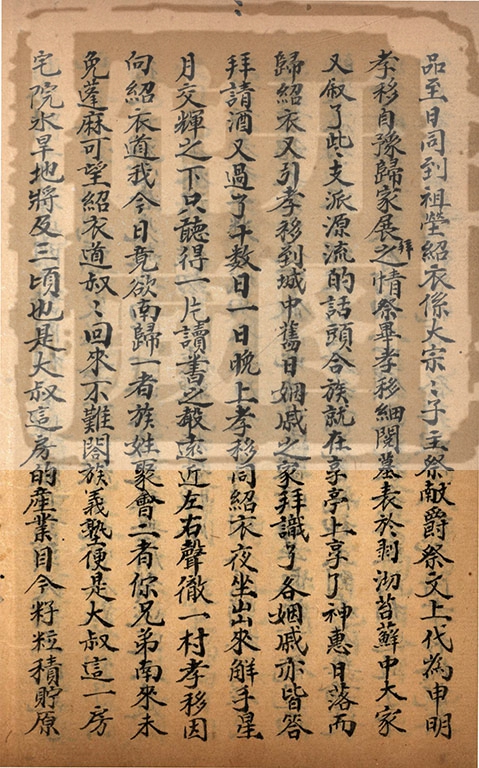 品至日同到祖塋紹衣係大宗〻子主祭献爵祭文上代為申明
孝移自豫歸家展拜之情祭畢孝移細閱墓表於剥泐苔蘚中大家
又叙了些〻支派源流的話頭合族就在享亭上享了神惠日落而
歸紹衣又引孝移到城中舊日姻戚之家拜識了各姻戚亦皆答
拜請酒又過了十数日一日晚上孝移同紹衣夜坐出來解手星
月交輝之下只聽得一片讀書之聲遠近左右聲徹一村孝移因
向紹衣道我今日竟欲南歸一者族姓聚會二者你兄弟南來未
免蓬麻可望紹衣道叔〻回來不難閤族義塾便是大叔這一房
宅院水旱地將及三頃也是大叔這房的產業目今籽粒積貯原